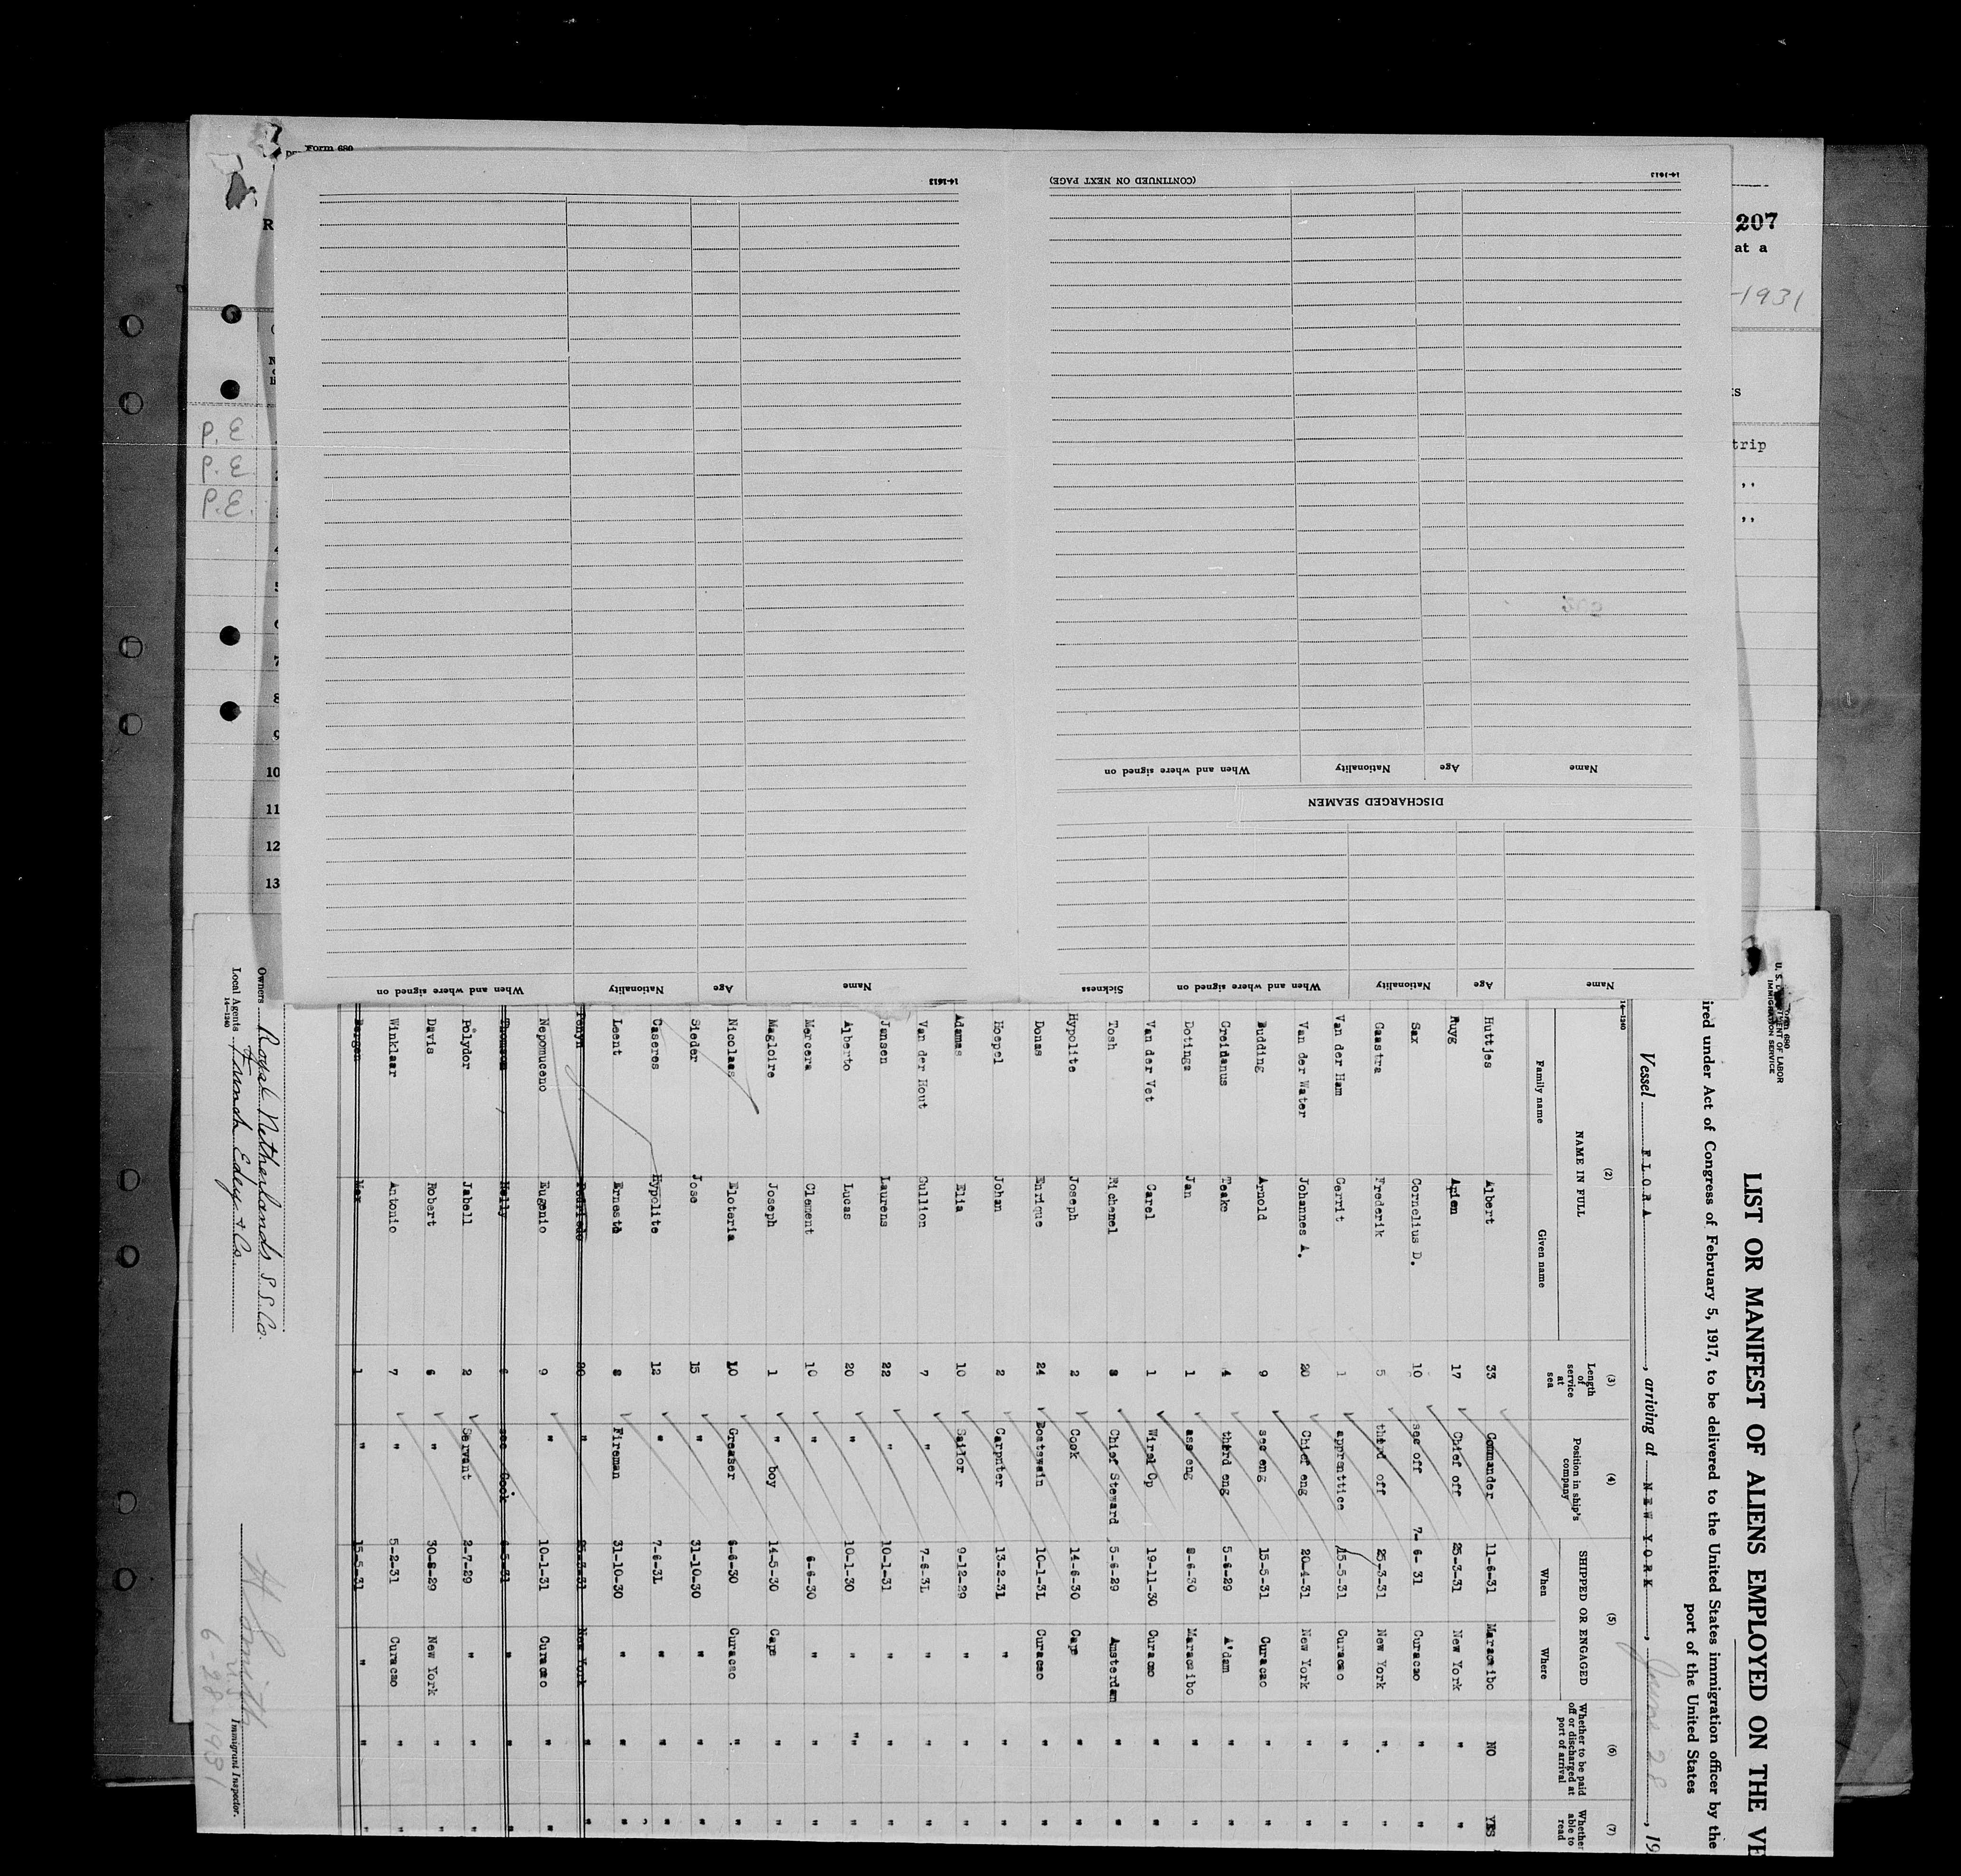 Form 680
207
at a
-1931
trip
,,
,,
P. E.
P. E
P.E.
8
9
10
11
12
13
14-1613
(CONTINUED ON NEXT PAGE)
14-1613
Name
Age
Nationality
When and where signed on
DISCHARGED SEAMEN
Name
Age
Nationality
When and where signed on
Sickness
Name
Age
Nationality
When and where signed on
LIST OR MANIFEST OF ALIENS EMPLOYED ON THE VE
ired under Act of Congress of February 5, 1917, to be delivered to the United States immigration officer by the
port of the United States
Vessel FLORA, arriving at NEW YORK, June 28, 19
14-1240
(2) (3) (4) (5) (6) (7)
NAME IN FULL Length of service at sea Position in ship's company SHIPPED OR ENGAGED Whether to be paid off or discharged at port of arrival Whether able to read
Family name Given name When Where
Huttjes Albert 33 Commander 11-6-31 Maracaibo NO YES
Ruyg Arien 17 Chief off 25-3-31 New York " "
Sax Cornelius D. 10 sec off 7-6-31 Curacao " "
Gaastra Frederik 5 third off 25-3-31 New York " "
Van der Ham Gerrit 1 apprentice 15-5-31 Curacao " "
Van der Water Johannes A. 20 Chief eng 20-4-31 New York " "
Budding Arnold 9 sec eng 15-5-31 Curacao " "
Greidanus Feake 4 third eng 5-6-29 A'dam " "
Dotinga Jan 1 ass eng 8-6-30 Maracaibo " "
Van der Vet Carel 1 Wirel Op 19-11-30 Curacao " "
Tosh Richenel 8 Chief Steward 5-6-29 Amsterdam " "
Hypolite Joseph 2 Cook 14-6-30 Cape " "
Donas Enrique 24 Boatswain 10-1-31 Curacao " "
Hoepel Johan 2 Carpnter 13-2-31 " " "
Adamas Elia 10 Sailor 9-12-29 " " "
Van der Hout Gullion 7 " 7-6-31 " " "
Jansen Laurens 22 " 10-1-31 " " "
Alberto Lucas 20 " 10-1-30 " " "
Mercera Clement 10 " 6-6-30 " " "
Magloire Joseph 1 " boy 14-5-30 Cape " "
Nicolaas Eloteria 10 Greaser 6-6-30 Curacao " "
Sieder Jose 15 " 31-10-30 " " "
Caseres Hypolite 12 " 7-6-31 " " "
Leent Ernesto 8 Fireman 31-10-30 " " "
Pedriedo 20 " 25-3-31 New York " "
Nepomuceno Eugenio 9 " 10-1-31 Curacao " "
Thomson Helly 6 sec Cook 6-5-31 " " "
Polydor Jabell 2 Servant 2-7-29 " " "
Davis Robert 6 " 30-8-29 New York " "
Winklaar Antonio 7 " 5-2-31 Curacao " "
Bergen Max 1 " 15-5-31 " " "
Owners Royal Netherlands S.S. Co.
Local Agents Funch Edye & Co.
14-1240
H Smith
6-28-1931 Immigrant Inspector.